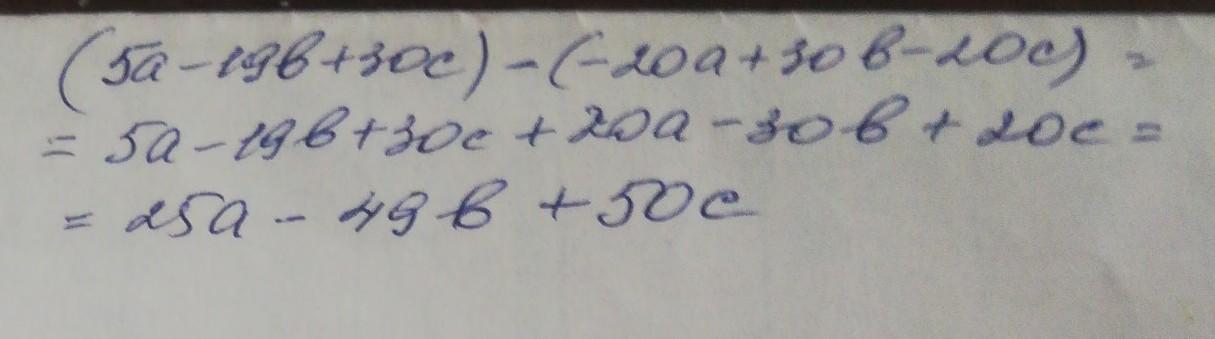 (5a-19в+30c)-(-20a+30в-20c) =
= 5a-19в+30c+20a-30в+20c=
= 25a-49в+50c